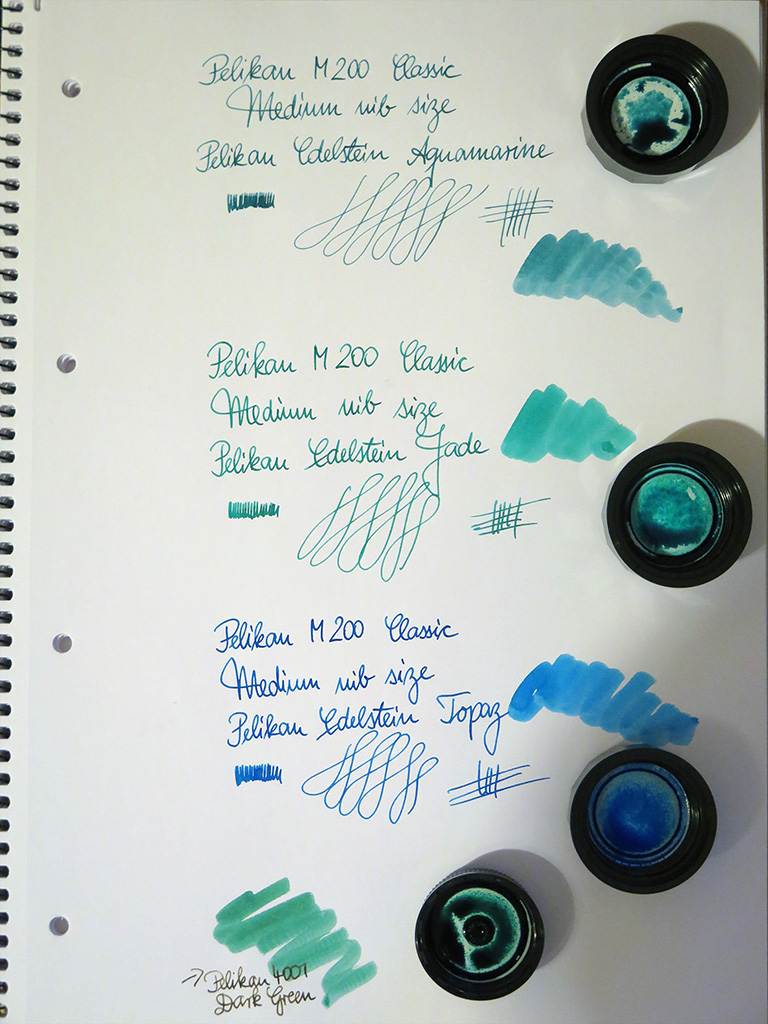 Pelikan M200 Classic
Medium nib size
Pelikan Edelstein Aquamarine
Pelikan M200 Classic
Medium nib size
Pelikan Edelstein Jade
Pelikan M200 Classic
Medium nib size
Pelikan Edelstein Topaz
→ Pelikan 4001
Dark Green